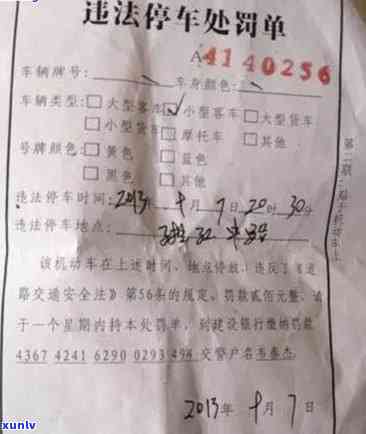 违法停车处罚单
A4140256
车辆牌号: 车身颜色:
车辆类型: 大型客车 小型客车 大型货车
小型货车 摩托车 其他
号牌颜色: 黄色 蓝色
黑色 其他
违法停车时间: 2013年 十月 7日 20时 30分
违法停车地点:
该机动车在上述时间、地点停放,违反了《道
路交通安全法》第56条的规定。罚款贰佰元整,请
于一个星期内持本处罚单,到建设银行缴纳罚款
4367 4241 6290 0293 498 交警户名韦泰杰
2013年 十月 7日
第二联 贴于机动车上
xunlv